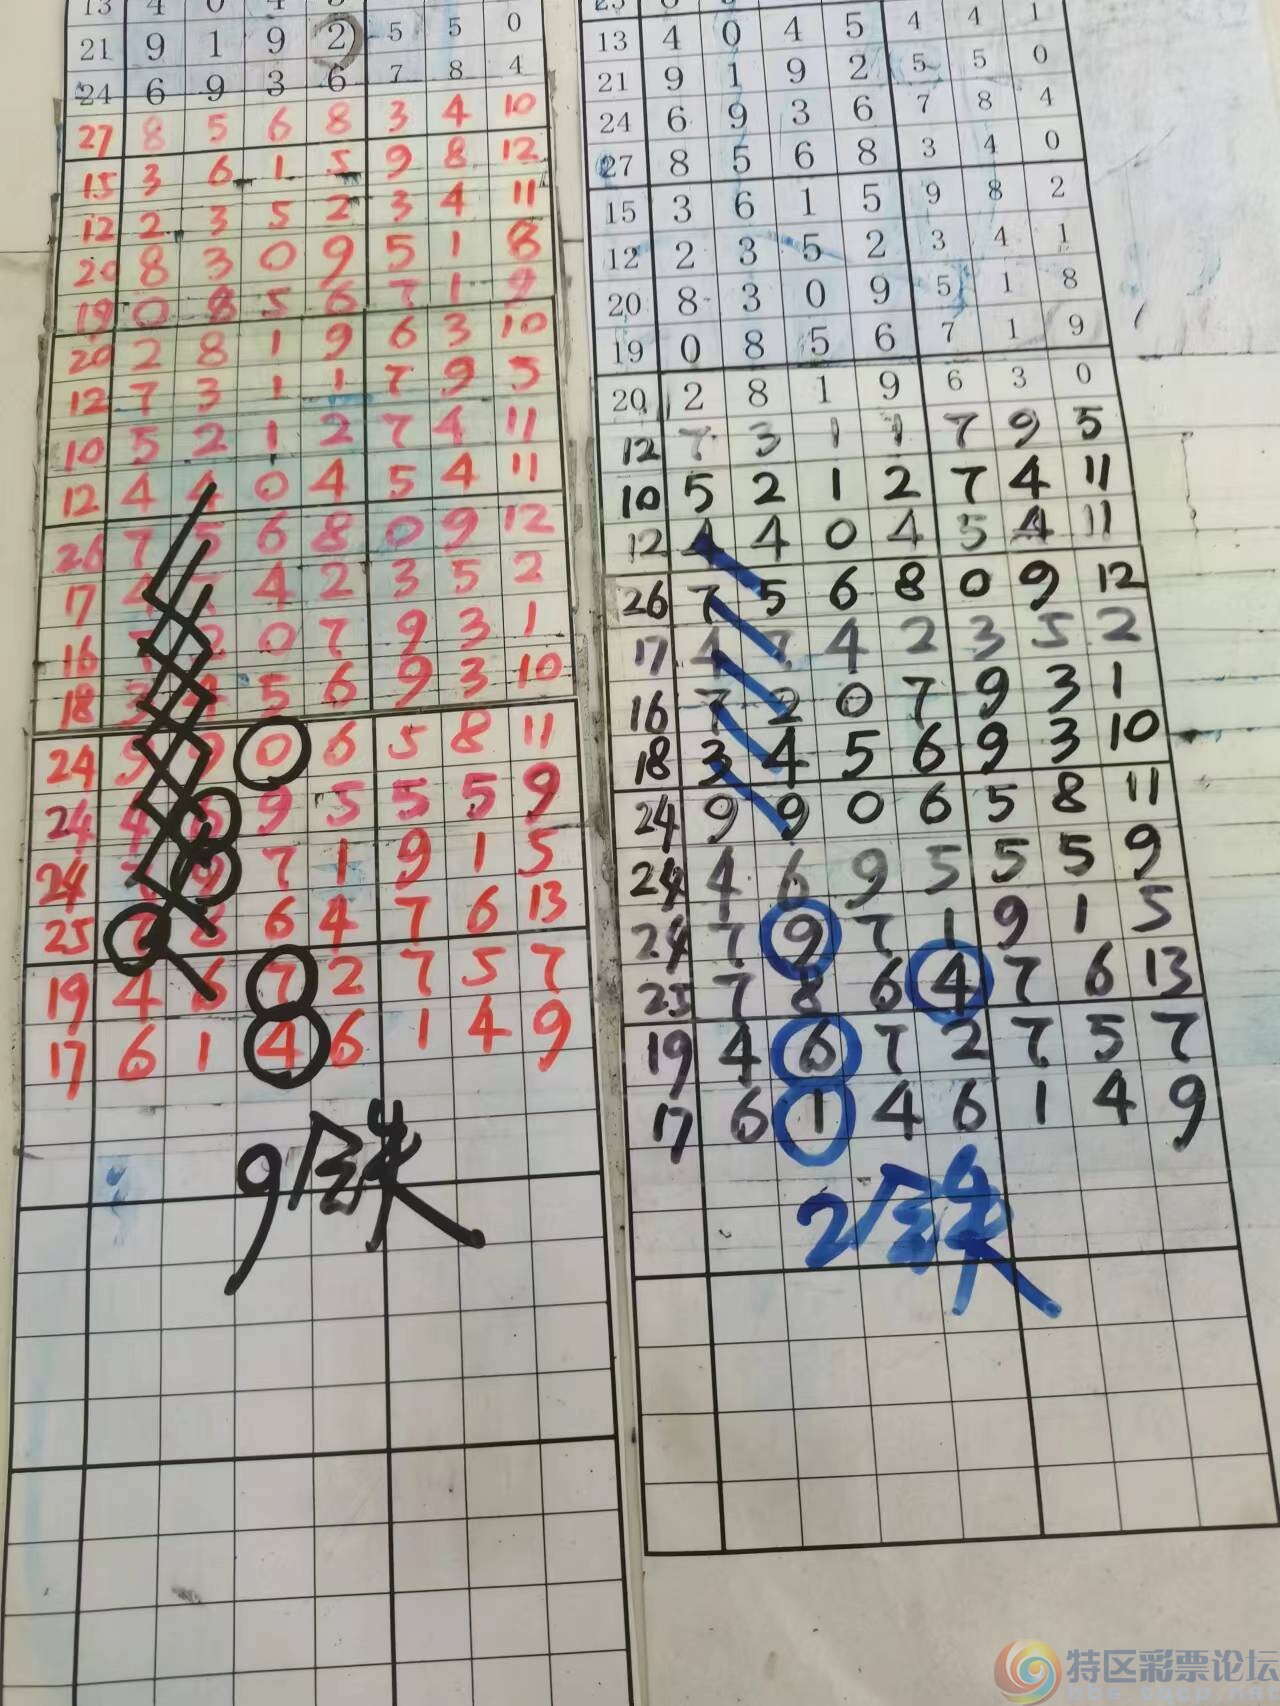 13 4 0 4 5
21 9 1 9 2 5 5 0
24 6 9 3 6 7 8 4
27 8 5 6 8 3 4 10
15 3 6 1 5 9 8 12
12 2 3 5 2 3 4 11
20 8 3 0 9 5 1 8
19 0 8 5 6 7 1 9
20 2 8 1 9 6 3 10
12 7 3 1 1 7 9 5
10 5 2 1 2 7 4 11
12 4 4 0 4 5 4 11
26 7 5 6 8 0 9 12
17 4 7 4 2 3 5 2
16 7 2 0 7 9 3 1
18 3 4 5 6 9 3 10
24 9 9 0 6 5 8 11
24 4 6 9 5 5 5 9
24 7 9 7 1 9 1 5
25 7 8 6 4 7 6 13
19 4 6 7 2 7 5 7
17 6 1 4 6 1 4 9
13 4 0 4 5 4 4 1
21 9 1 9 2 5 5 0
24 6 9 3 6 7 8 4
27 8 5 6 8 3 4 0
15 3 6 1 5 9 8 2
12 2 3 5 2 3 4 1
20 8 3 0 9 5 1 8
19 0 8 5 6 7 1 9
20 2 8 1 9 6 3 0
12 7 3 1 1 7 9 5
10 5 2 1 2 7 4 11
12 4 4 0 4 5 4 11
26 7 5 6 8 0 9 12
17 4 7 4 2 3 5 2
16 7 2 0 7 9 3 1
18 3 4 5 6 9 3 10
24 9 9 0 6 5 8 11
24 4 6 9 5 5 5 9
24 7 9 7 1 9 1 5
25 7 8 6 4 7 6 13
19 4 6 7 2 7 5 7
17 6 1 4 6 1 4 9
特区彩票论坛
bbs.tqcp.net